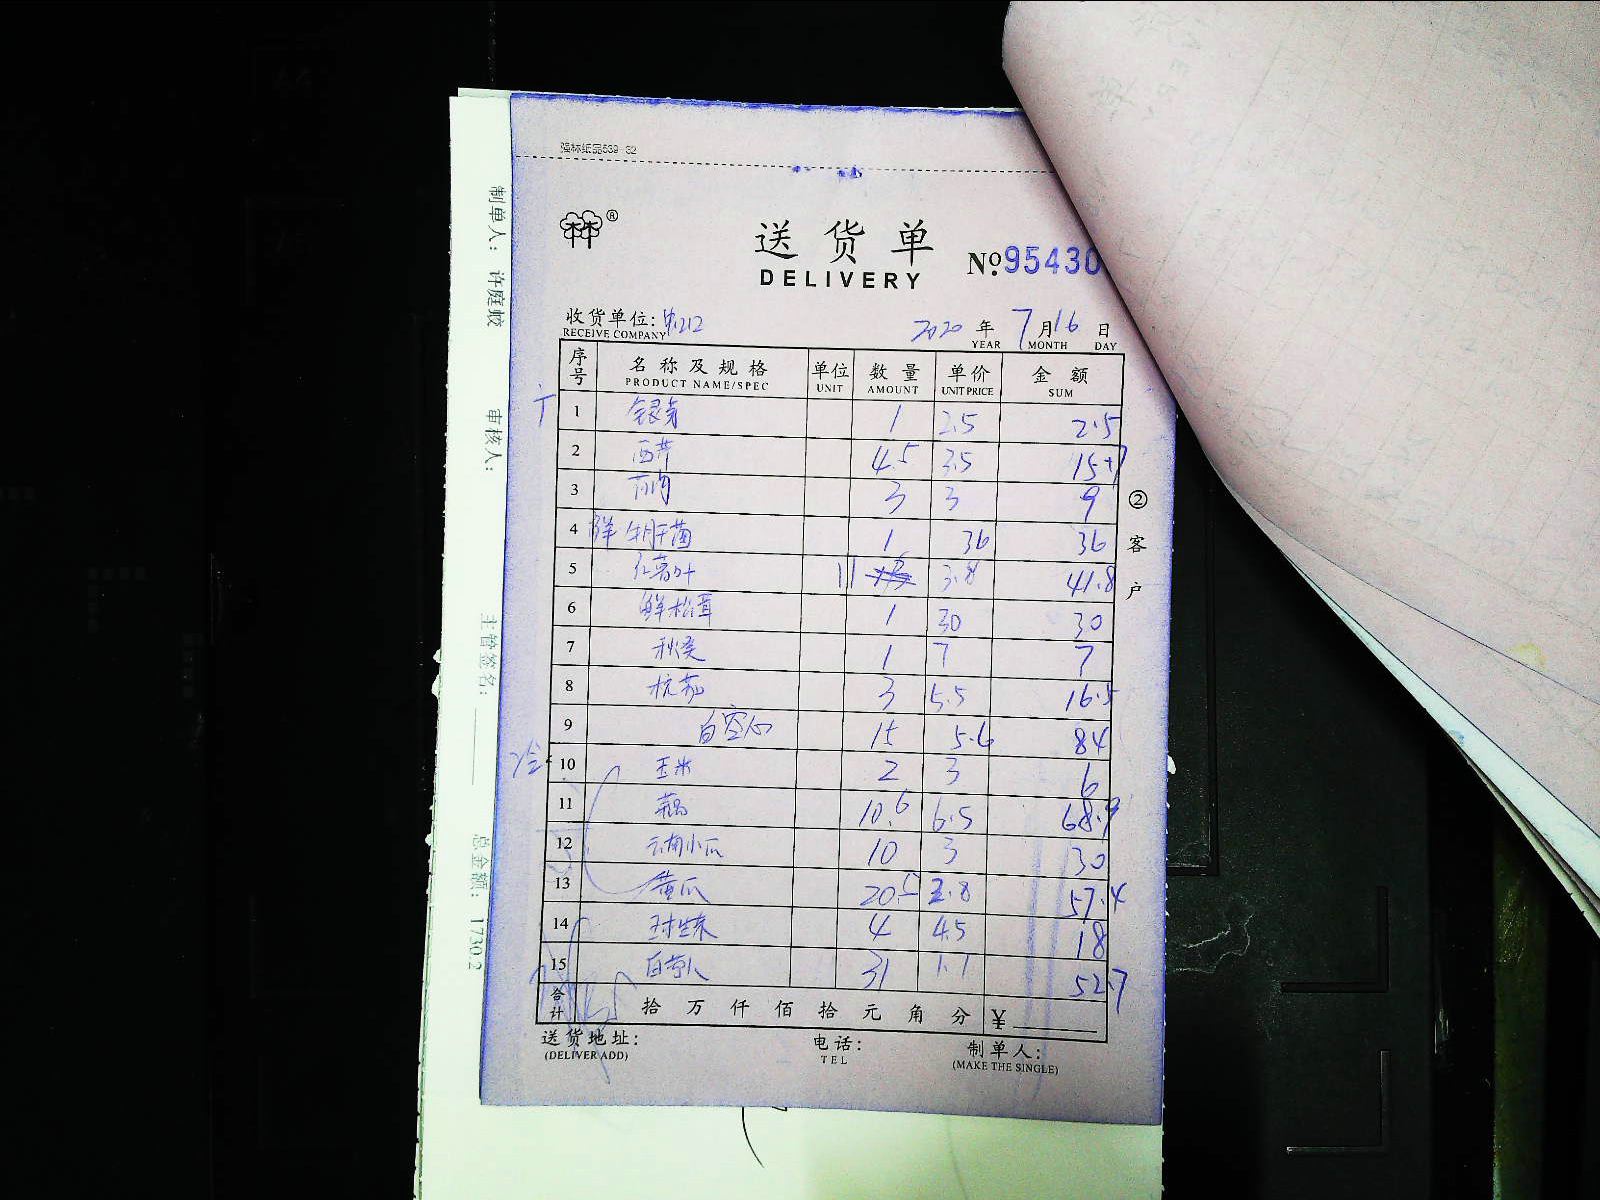 强林纸品539-32
®
送货单
DELIVERY
No.95430
收货单位:
RECEIVE COMPANY
2020 年 7 月 16 日
YEAR MONTH DAY
序号 名称及规格 单位 数量 单价 金额
PRODUCT NAME/SPEC UNIT AMOUNT UNIT PRICE SUM
1 银芽 1 2.5 2.5
2 西芹 4.5 3.5 15.7
3 3 3 9
4 鲜牛肝菌 1 36 36
5 红薯叶 11 3.8 41.8
6 鲜松茸 1 30 30
7 秋葵 1 7 7
8 杭茄 3 5.5 16.5
9 白空心 15 5.6 84
10 玉米 2 3 6
11 藕 10.6 6.5 68.9
12 云南小瓜 10 3 30
13 黄瓜 20.5 2.8 57.4
14 球生菜 4 4.5 18
15 31 1.7 52.7
合计 拾 万 仟 佰 拾 元 角 分 ¥
送货地址: 电话: 制单人:
(DELIVER ADD) TEL (MAKE THE SINGLE)
②客户
制单人: 许庭蛟
审核人:
主管签名:
总金额: 1730.2